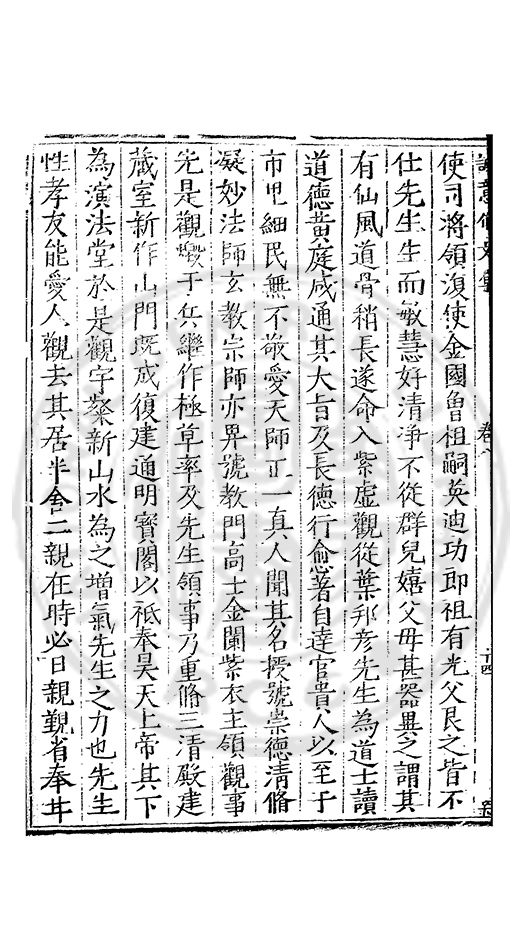 使司將領復使金國魯祖嗣英迪功郎祖有光父艮之皆不
仕先生生而敏慧好清凈不從群兒嬉父毋甚器異之謂其
有仙風道骨稍長遂命入紫虛觀從葉邦彦先生為道士讀
道德黄庭咸通其大旨及長德行愈著自達官貴人以至于
市㞢細民無不敬愛天師正一真人聞其名授號崇德清脩
凝妙法師玄教宗師亦畀號教門高士金闌紫衣主領觀事
先是觀燬于兵繼作極草率及先生領事乃重脩三清殿建
藏室新作山門既成復建通明寳閣以祗奉昊天上帝其下
為演法堂於是觀宇粲新山水為之増氣先生之力也先生
性孝友能愛人觀去其居半舍二親在時必日親覲省奉甘
卷
十四